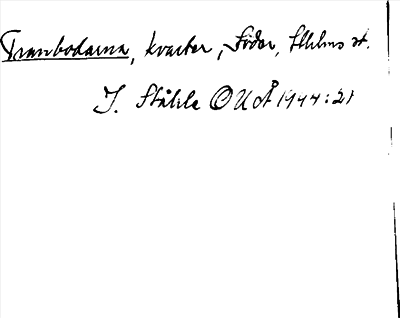 Tranbodarna, kvarter, Söder, Sthlms st.
J. Ståhle OUÅ 1944:21